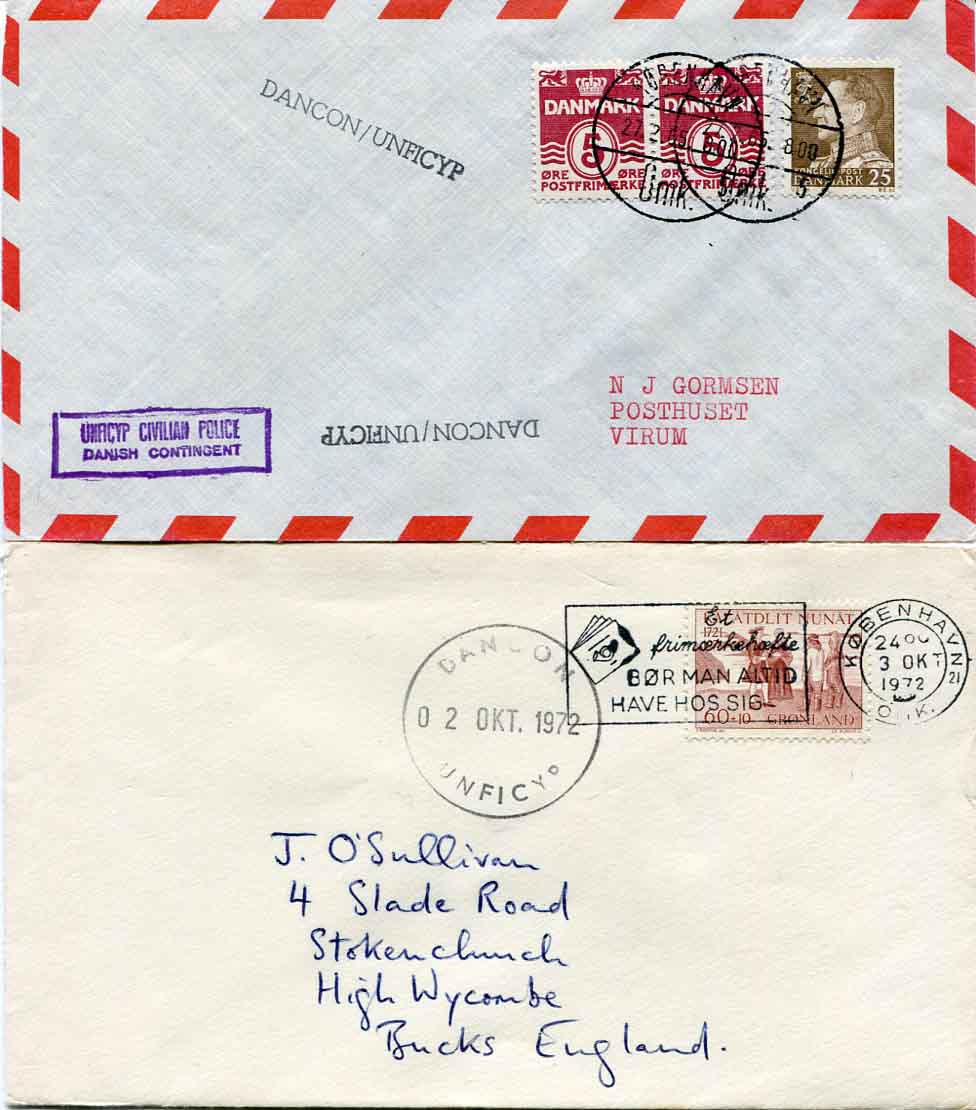 DANCON/UNFICYP
DANMARK
5
ØRE ØRE
POSTFRIMÆRKE
DANMARK
ØRE ØRE
POSTFRIMÆRKE
KØBENHAVN
27.2.
8.00
Omk.
8.00
Omk.
5
DANMARK 25
N J GORMSEN
POSTHUSET
VIRUM
DANCON/UNFICYP
UNFICYP CIVILIAN POLICE
DANISH CONTINGENT
Et
frimærkehæfte
BØR MAN ALTID
HAVE HOS SIG
NUNAT
1721
60+10 GRØNLAND
KØBENHAVN
3 OKT
1972
21
OMK.
DANCON
02 OKT. 1972
UNFICYP
J. O'Sullivan
4 Slade Road
Stokenchurch
High Wycombe
Bucks England.